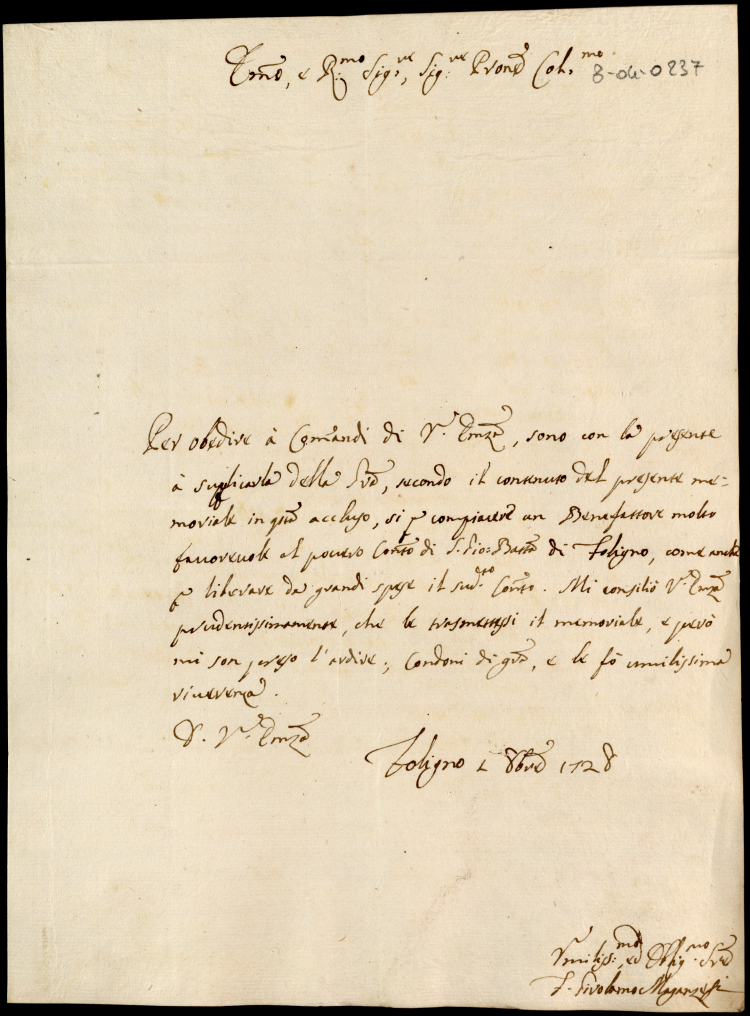 Em̃o, e R.mo Sig.re, Sig.re Pron̄e Col.mo
8-04-0237
Per obedire à Com̃andi di V.ra Emz̄a, sono con la presente
à suplicarla della Grā, secondo il contenuto del presente me=
moriale in qstō accluso, si ꝑ compiacere un Benefattore molto
fauoreuole al pouero Conṽto di S. Gio: Battā di Foligno, come anche
ꝑ liberare da grandi spese il sud.to Conṽto. Mi consiliò V.ra Emz̄a
prudentissimamente, che le trasmettessi il memoriale, e però
mi son preso l'ardire; Condoni di grā, e le fò umilissima
riuerenza.
D. V.ra Emz̄a
Foligno 8brē 1728
Vmiliss:mo, ed Oblig.mo Serē
F. Girolamo